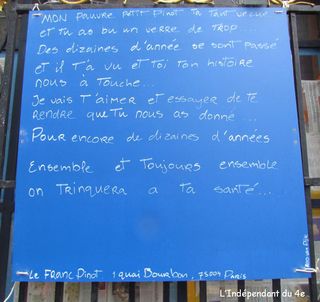 MON pauvre petit Pinot Ta Tant vécue
et Tu as bu un verre de TROP...
Des dizaines d'année se sont Passé
et il T'a vu et toi Ton histoire
nous à Touche...
Je vais T'aimer et essayer de Te
rendre que Tu nous as donné...
Pour encore de dizaines d'années
Ensemble et Toujours ensemble
on Trinquera a Ta santé...
Le Franc-Pinot 1 quai Bourbon, 75004 Paris
L'Indépendant du 4e